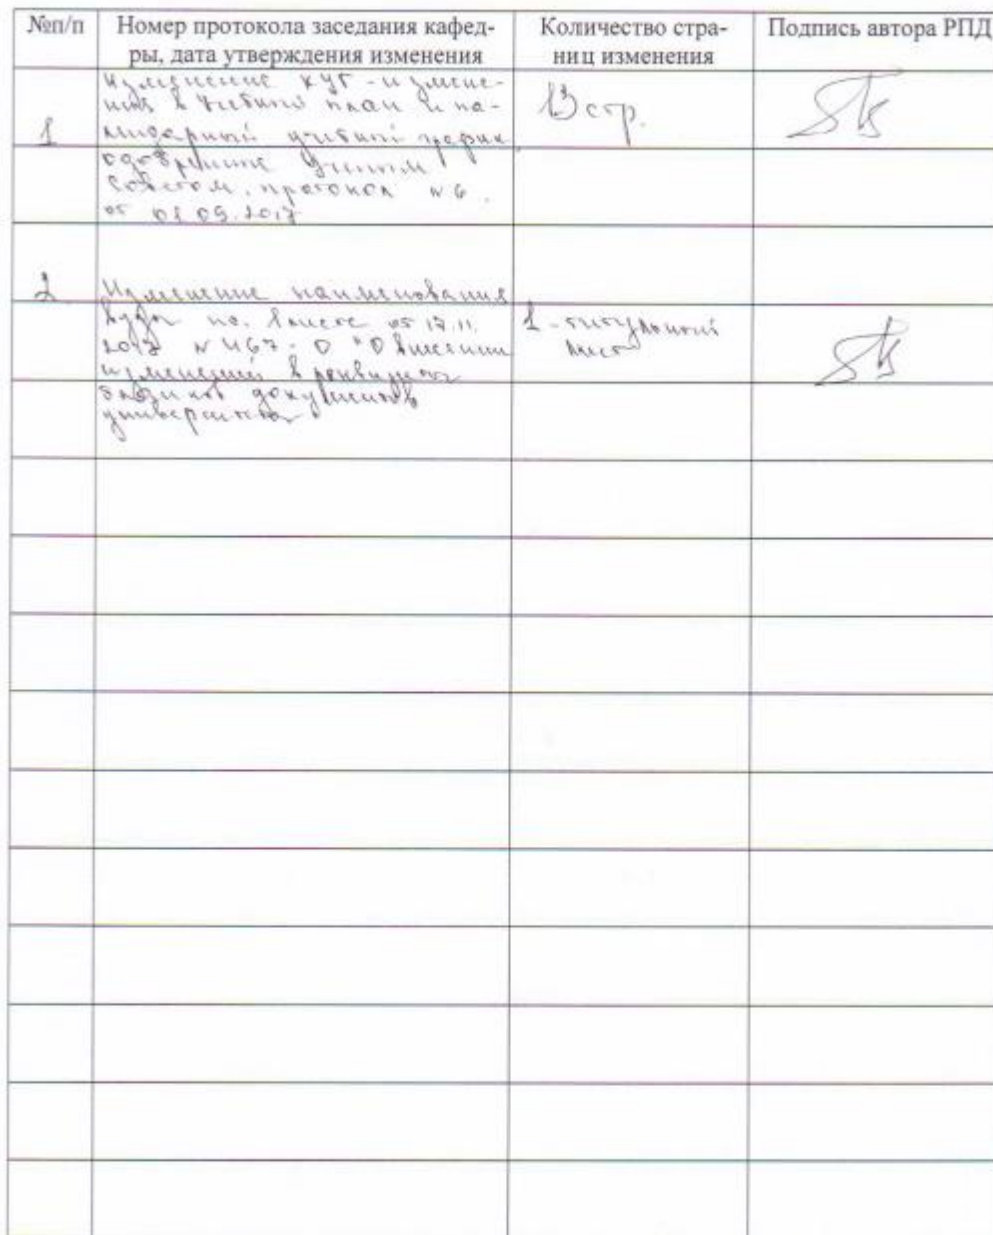 №п/п Номер протокола заседания кафед- Количество стра- Подпись автора РПД
ры, дата утверждения изменения ниц изменения
1
Изменение КУГ - измене-
ния в учебный план и ка-
лендарный учебный график,
одобренные Ученым
Советом, протокол №6
от 01.09.2017
13 стр.
2
Изменение наименования
вуза на. от 17.11.
2017 № 467-О "О внесении
изменений в реквизиты
бланков документов
университета"
1 - титульный
лист